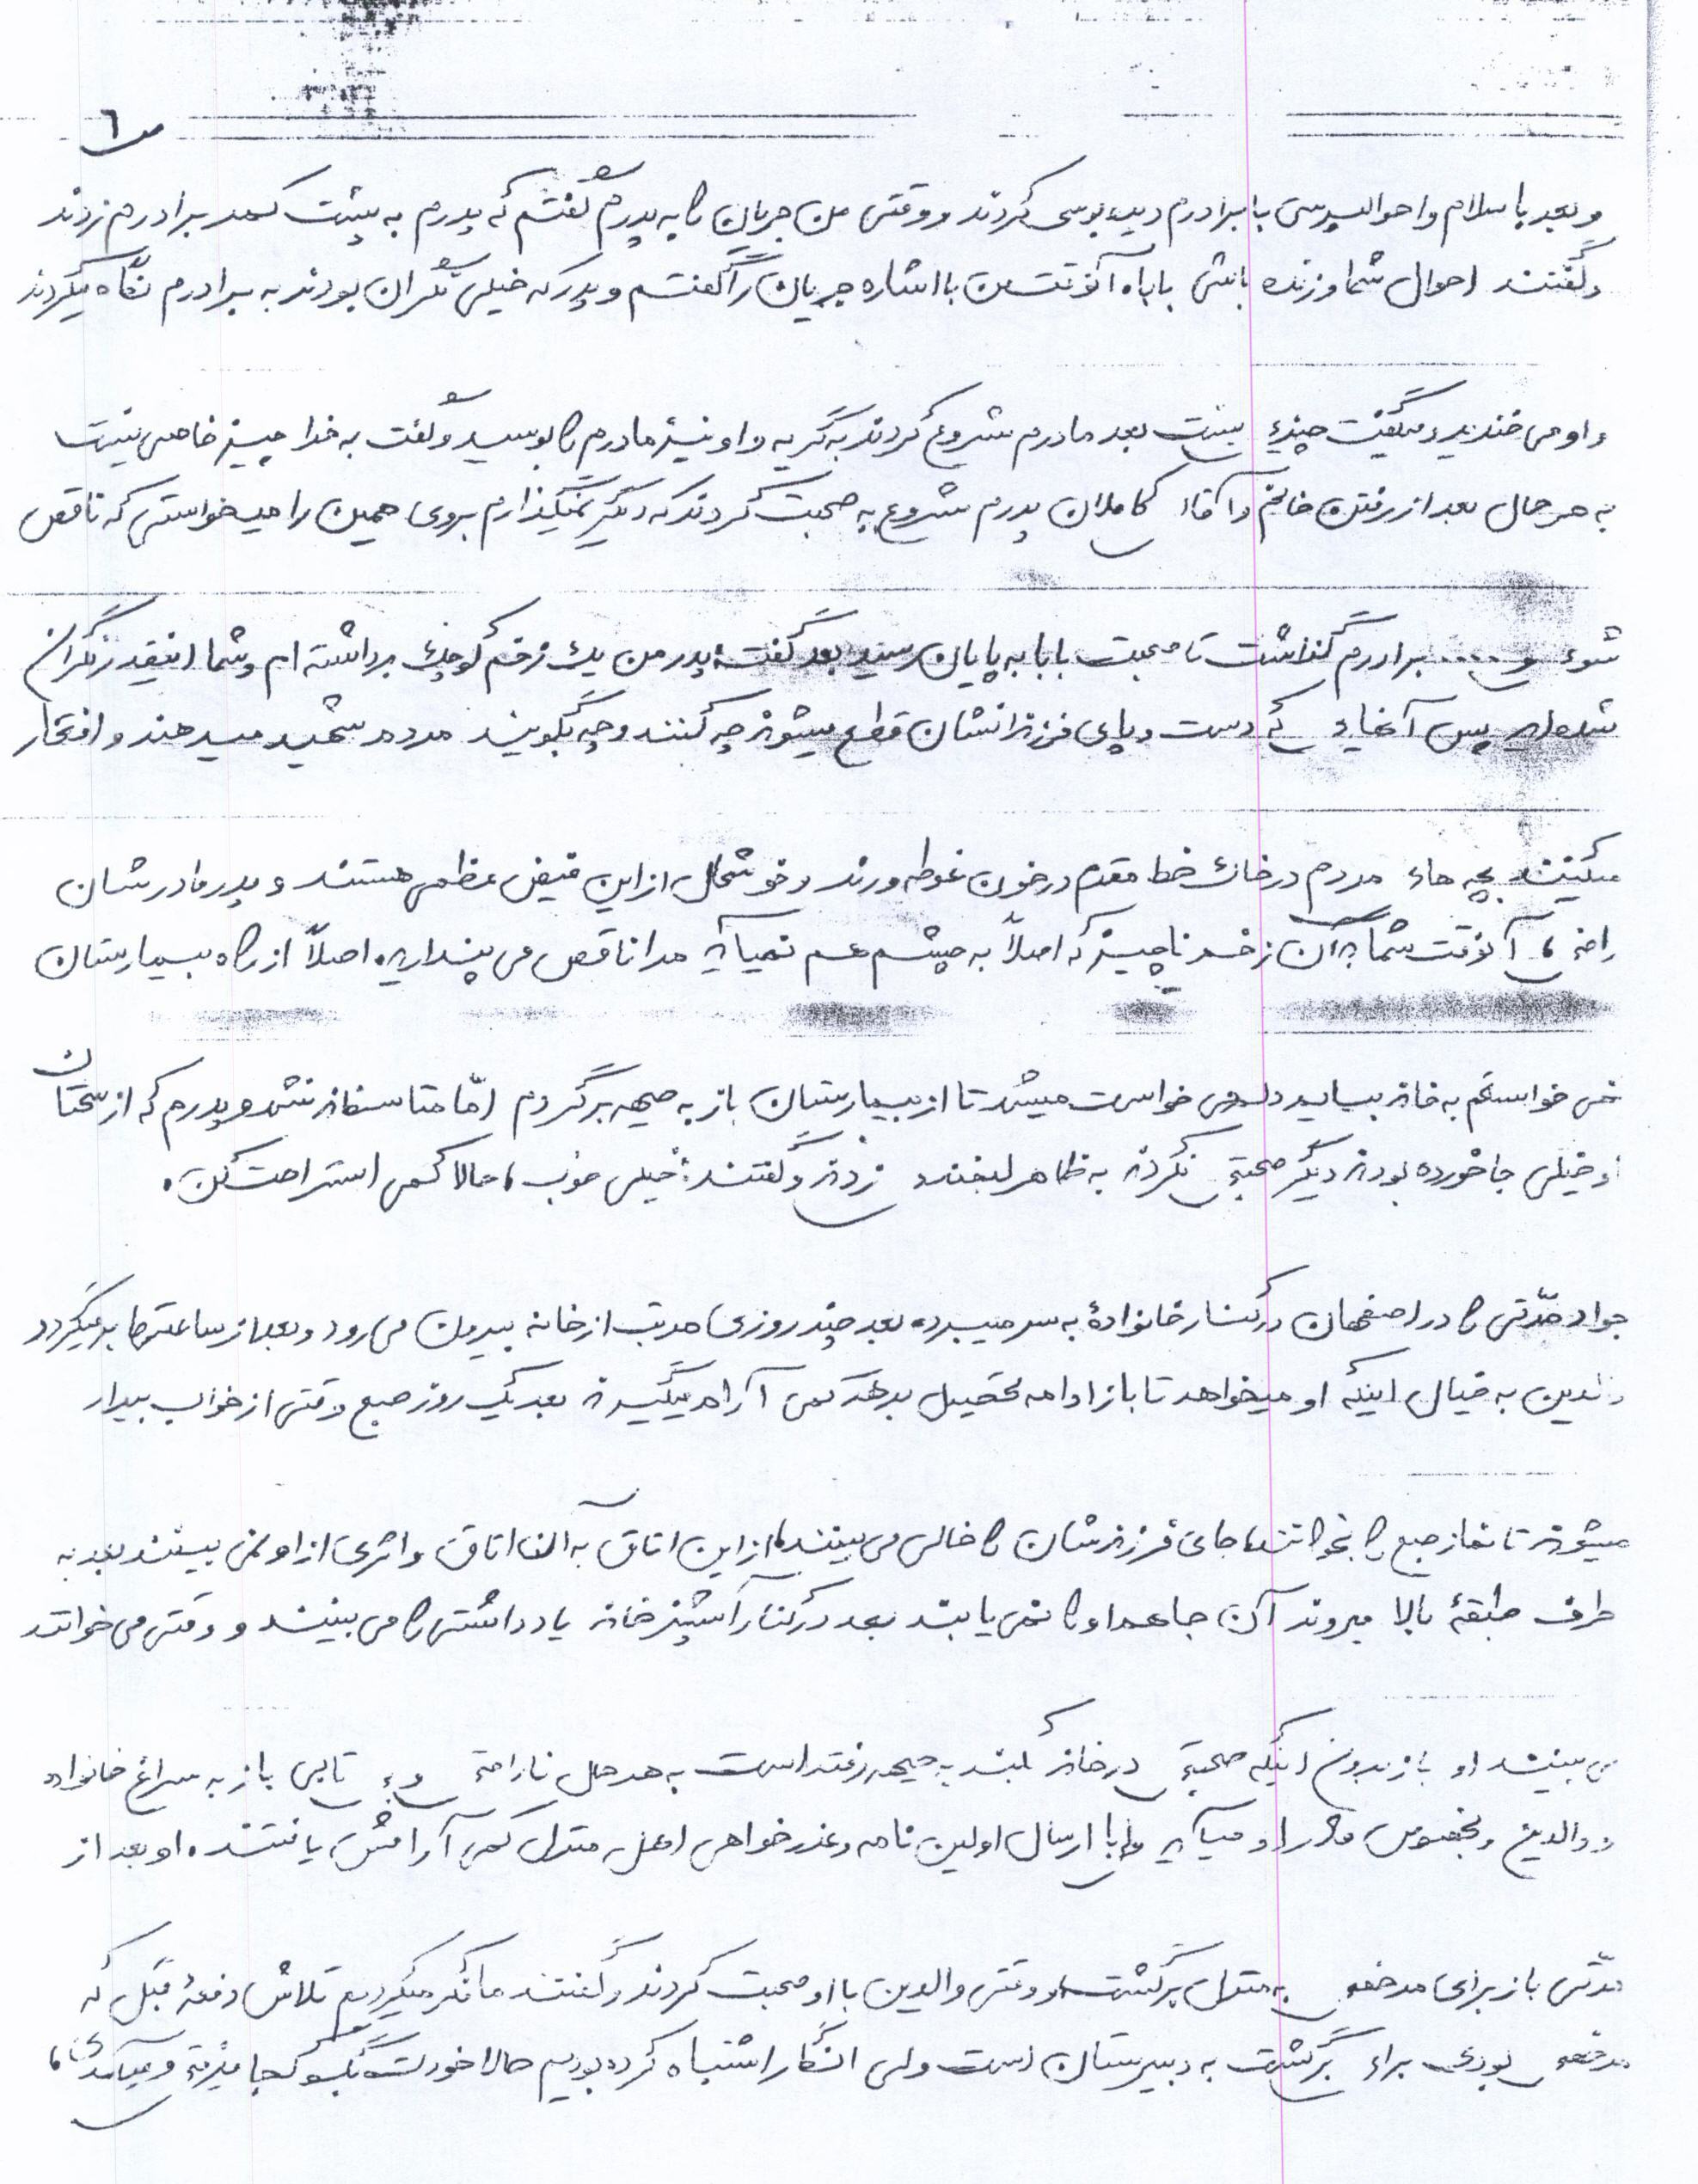 ص ٦
و بعد با سلام و احوالپرسی با برادرم دیده بوسی کردند و وقتی من جریان را به پدرم گفتم که پدرم به پشت کمد برادرم زدند
و گفتند احوال شما و زنده باشی بابا، آنوقت من با اشاره جریان را گفتم و پدر که خیلی نگران بودند به برادرم نگاه میکردند
و او می خندید و میگفت چیزی نیست بعد مادرم شروع کردند به گریه و او نیز مادرم را بوسید و گفت به خدا چیز خاصی نیست
به هر حال بعد از رفتن خانم و آقای کاملان پدرم شروع به صحبت کردند که دیگر نمیگذارم بروی همین را میخواستی که ناقص
شوی و .... برادرم گذاشت تا صحبت بابا به پایان رسید بعد گفت: پدر من یک زخم کوچک برداشته ام و شما اینقدر نگران
شده اید پس آنهایی که دست و پای فرزندانشان قطع میشود چه کنند و چه بگویند مردم شهید میدهند و افتخار
میکنند بچه های مردم در خاک خط مقدم در خون غوطه ورند و خوشحال از این فیض عظمی هستند و پدر و مادرشان
راضی، آنوقت شما با آن زخم ناچیز که اصلاً به چشم هم نمیآید مرا ناقص می پندارید اصلاً از راه بیمارستان
نمی خواستم به خانه بیایم دلم می خواست میشد تا از بیمارستان باز به جبهه برگردم امّا متاسفانه نشد و پدرم که از سخنان
او خیلی جا خورده بودند دیگر صحبتی نکردند به ظاهر لبخندی زدند و گفتند: خیلی خوب، حالا کمی استراحت کن.
جواد مدّتی را در اصفهان در کنار خانواده به سر میبرد، بعد چند روزی مرتب از خانه بیرون می رود و بعد از ساعتها برمیگردد
والدین به خیال اینکه او میخواهد تا باز ادامه تحصیل بدهد کمی آرام میگیرند بعد یک روز صبح وقتی از خواب بیدار
میشوند تا نماز صبح را بخوانند، جای فرزندشان را خالی می بینند، از این اتاق به آن اتاق و اثری از او نمی بینند بعد به
طرف طبقهٔ بالا میروند آن جا هم او را نمی یابند بعد در کنار آشپزخانه یادداشتی را می بینند و وقتی می خوانند
می بینند او باز بدون اینکه صحبتی در خانه بکند به جبهه رفته است به هر حال ناراحتی و بی تابی باز به سراغ خانواده
و والدین و بخصوص مادر او میآید و با ارسال اولین نامه و عذرخواهی اهل منزل کمی آرامش یافتند، او بعد از
مدّتی باز برای مرخصی به منزل برگشت، و وقتی والدین با او صحبت کردند و گفتند ما فکر میکردیم تلاش دفعهٔ قبل که
مرخصی بودی برای برگشت به دبیرستان است ولی انگار اشتباه کرده بودیم حالا خودت بگو کجا میرفتی و میآمدی،